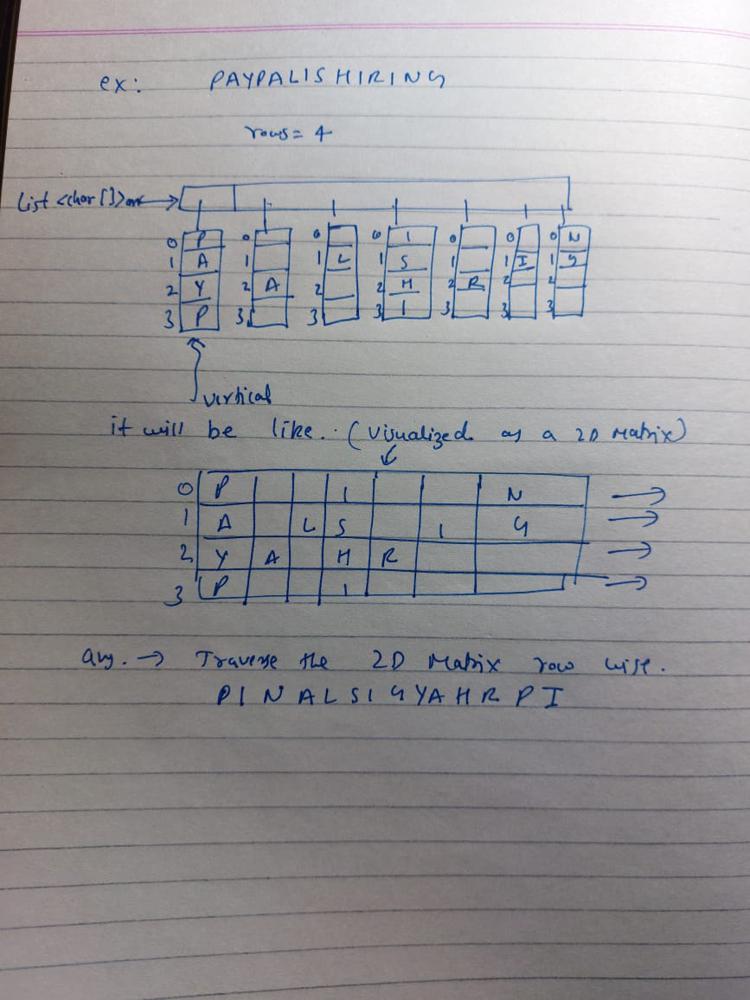 ex: PAYPALISHIRING
rows = 4
List <char[]> arr
0 P 0 0 0 I 0 0 0 N
1 A 1 1 L 1 S 1 1 I 1 G
2 Y 2 A 2 2 H 2 R 2 2
3 P 3 3 3 I 3 3 3
vertical
it will be like. (visualized as a 2D Matrix)
0 P I N
1 A L S I G
2 Y A H R
3 P I
ans. → Traverse the 2D Matrix row wise.
PINALSIGYAHRPI